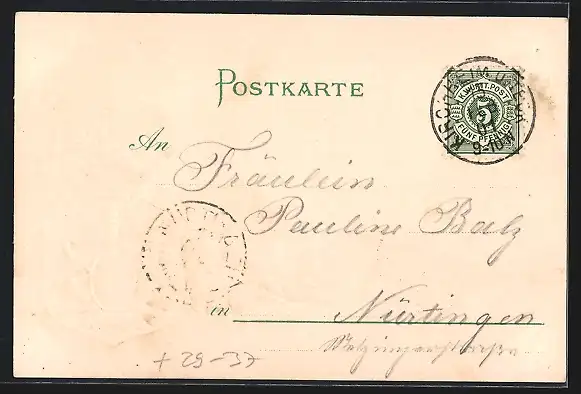 POSTKARTE
K. WÜRTT. POST
5
FÜNF PFENNIG
KIRCHHEIM U. TECK
9-10 V
An
Fräulein
Pauline Balz
in Nürtingen
+ 29-37